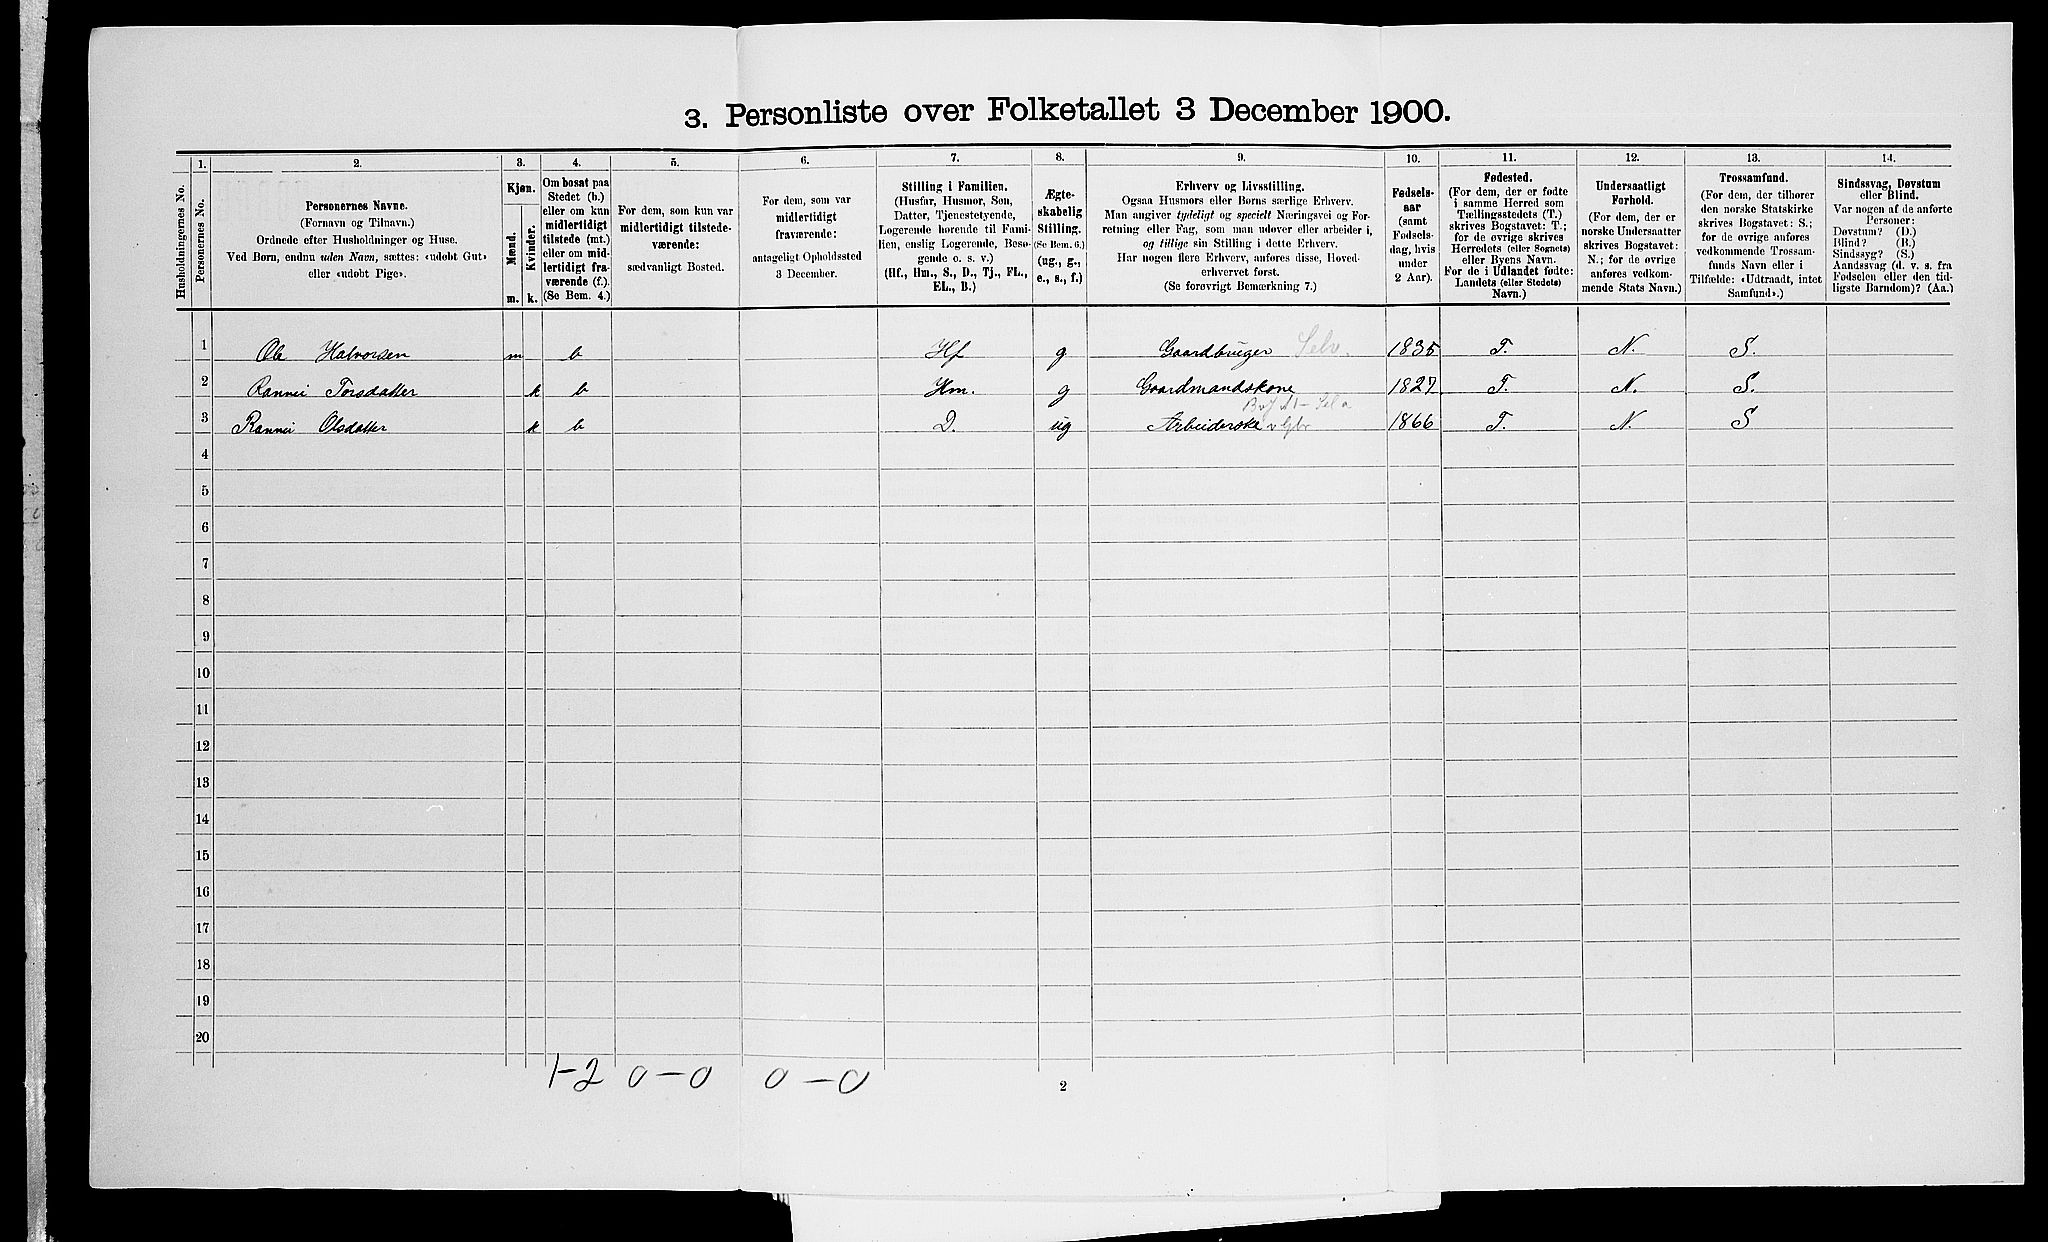 3. Personliste over Folketallet 3 December 1900.
1. 2. 3. 4. 5. 6. 7. 8. 9. 10. 11. 12. 13. 14.
Husholdningernes No.
Personernes No.
Personernes Navne.
(Fornavn og Tilnavn.)
Ordnede efter Husholdninger og Huse.
Ved Børn, endnu uden Navn, sættes: «udøbt Gut»
eller «udøbt Pige».
Kjøn.
Mænd.
Kvinder.
m. k.
Om bosat paa
Stedet (b.)
eller om kun
midlertidigt
tilstede (mt.)
eller om mid-
lertidigt fra-
værende (f.).
(Se Bem. 4.)
For dem, som kun var
midlertidigt tilstede-
værende:
sædvanligt Bosted.
For dem, som var
midlertidigt
fraværende:
antageligt Opholdssted
3 December.
Stilling i Familien.
(Husfar, Husmor, Søn,
Datter, Tjenestetyende,
Logerende hørende til Fami-
lien, enslig Logerende, Besø-
gende o. s. v.)
(Hf., Hm., S., D., Tj., FL.,
EL., B.)
Ægte-
skabelig
Stilling.
(Se Bem. 6.)
(ug., g.,
e., s., f.)
Erhverv og Livsstilling.
Ogsaa Husmors eller Børns særlige Erhverv.
Man angiver tydeligt og specielt Næringsvei og For-
retning eller Fag, som man udøver eller arbeider i,
og tillige sin Stilling i dette Erhverv.
Har nogen flere Erhverv, anføres disse, Hoved-
erhvervet først.
(Se forøvrigt Bemærkning 7.)
Fødsels-
aar
(samt
Fødsels-
dag, hvis
under
2 Aar).
Fødested.
(For dem, der er fødte
i samme Herred som
Tællingsstedets (T.)
skrives Bogstavet: T.;
for de øvrige skrives
Herredets (eller Sognets)
eller Byens Navn.
For de i Udlandet fødte:
Landets (eller Stedets)
Navn.)
Undersaatligt
Forhold.
(For dem, der er
norske Undersaatter
skrives Bogstavet:
N.; for de øvrige
anføres vedkom-
mende Stats Navn.)
Trossamfund.
(For dem, der tilhører
den norske Statskirke
skrives Bogstavet: S.;
for de øvrige anføres
vedkommende Trossam-
funds Navn eller i
Tilfælde: «Udtraadt, intet
Samfund».)
Sindssvag, Døvstum
eller Blind.
Var nogen af de anførte
Personer:
Døvstum? (D.)
Blind? (B.)
Sindssyg? (S.)
Aandssvag (d. v. s. fra
Fødselen eller den tid-
ligste Barndom)? (Aa.)
1 Ole Halvorsen m b Hf g Gaardbruger Selv. 1835 T. N. S.
2 Rannei Torsdatter k b Hm. g Gaardmandskone 1827 T. N. S.
3 Rannei Olsdatter k b D. ug Arbeiderske 1866 T. N. S
4
5
6
7
8
9
10
11
12
13
14
15
16
17
18
19
20
1-2 0-0 0-0
2